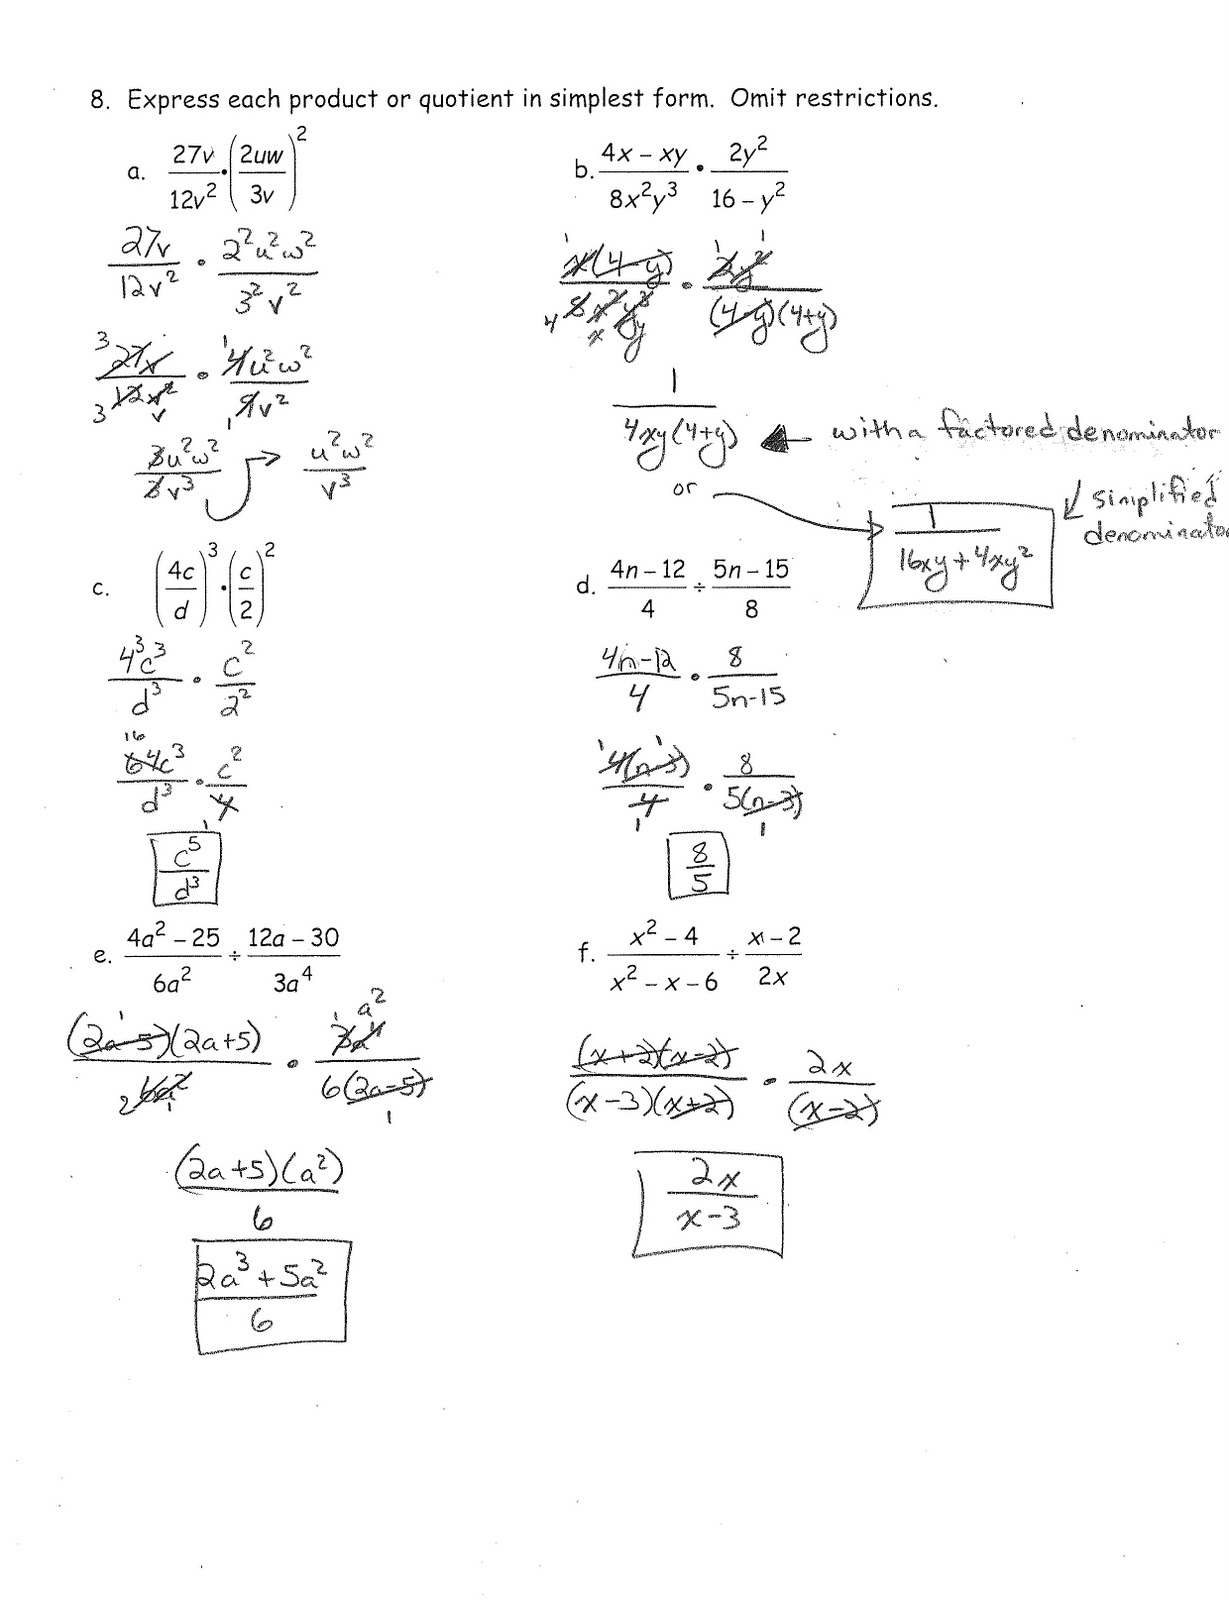 8. Express each product or quotient in simplest form. Omit restrictions.
a. 27v/12v² · (2uw/3v)²
27v/12v² · 2²u²w²/3²v²
3 27v/12v² 3 v · 1 4u²w²/9v² 1
3u²w²/3v³ → u²w²/v³
b. (4x – xy)/(8x²y³) · 2y²/(16 – y²)
1 x(4-y)/8x²y³ 4 x y · 1 1 2y²/(4-y)(4+y)
1/4xy(4+y) ← with a factored denominator
or → 1/(16xy+4xy²) ↙ simplified
denominator
c. (4c/d)³ · (c/2)²
4³c³/d³ · c²/2²
16 64c³/d³ · c²/4 1
c⁵/d³
d. (4n – 12)/4 ÷ (5n – 15)/8
(4n-12)/4 · 8/(5n-15)
1 1 4(n-3)/4 1 · 8/5(n-3) 1
8/5
e. (4a² – 25)/6a² ÷ (12a – 30)/3a⁴
1 (2a-5)(2a+5)/6a² 2 1 · 1 a² 3a⁴/6(2a-5) 1
(2a+5)(a²)/6
(2a³+5a²)/6
f. (x² – 4)/(x² – x – 6) ÷ (x – 2)/2x
(x+2)(x-2)/(x-3)(x+2) · 2x/(x-2)
2x/(x-3)